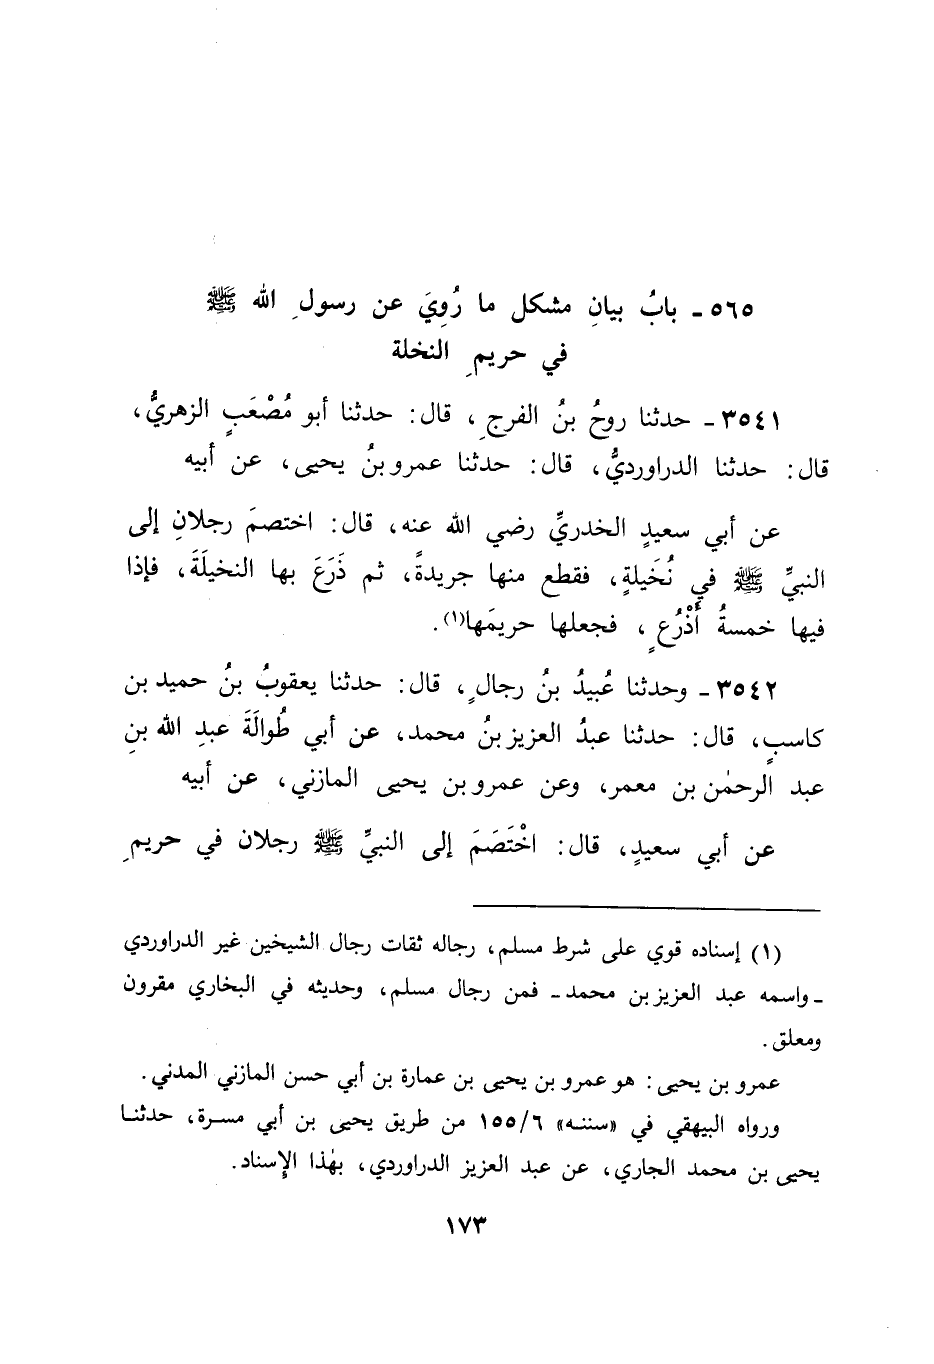 ٥٦٥ ـ بابُ بيانِ مشكل ما رُوِيَ عن رسولِ الله ﷺ
في حريمِ النخلة
٣٥٤١ ـ حدثنا روحُ بنُ الفرجِ، قال: حدثنا أبو مُصْعَبٍ الزهريُّ،
قال: حدثنا الدراورديُّ، قال: حدثنا عمرو بنُ يحيى، عن أبيه
عن أبي سعيدٍ الخدريِّ رضي الله عنه، قال: اختصمَ رجلانِ إلى
النبيِّ ﷺ في نُخَيلةٍ، فقطع منها جريدةً، ثم ذَرَعَ بها النخيلَةَ، فإذا
فيها خمسةُ أَذْرُعٍ، فجعلها حريمَها(١).
٣٥٤٢ ـ وحدثنا عُبيدُ بنُ رجالٍ، قال: حدثنا يعقوبُ بنُ حميد بن
كاسبٍ، قال: حدثنا عبدُ العزيز بنُ محمد، عن أبي طُوالَةَ عبدِ الله بنِ
عبد الرحمٰن بن معمر، وعن عمرو بن يحيى المازني، عن أبيه
عن أبي سعيدٍ، قال: اخْتَصَمَ إلى النبيِّ ﷺ رجلان في حريمِ
(١) إسناده قوي على شرط مسلم، رجاله ثقات رجال الشيخين غير الدراوردي
ـ واسمه عبد العزيز بن محمد ـ فمن رجال مسلم، وحديثه في البخاري مقرون
ومعلق.
عمرو بن يحيى: هو عمرو بن يحيى بن عمارة بن أبي حسن المازني المدني.
ورواه البيهقي في «سننه» ١٥٥/٦ من طريق يحيى بن أبي مسرة، حدثنا
يحيى بن محمد الجاري، عن عبد العزيز الدراوردي، بهٰذا الإسناد.
١٧٣